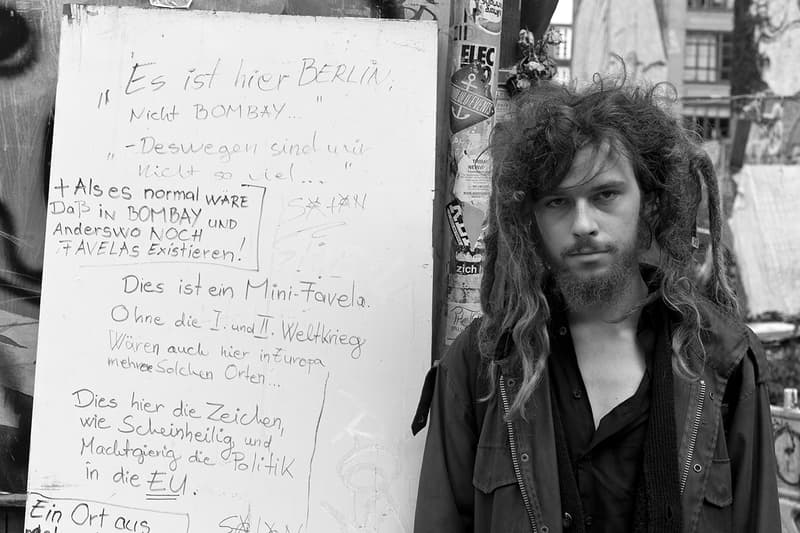 „Es ist hier BERLIN,
Nicht BOMBAY..."
„-Deswegen sind wir
nicht so viel..."
+Als es normal WÄRE
Daß in BOMBAY UND
Anderswo NOCH
FAVELAs Existieren!
S*t*N
Dies ist ein Mini-Favela.
Ohne die I. und II. Weltkrieg
Wären auch hier in Europa
mehrere Solchen Orten...
Dies hier die Zeichen,
wie Scheinheilig und
Machtgierig die Politik
in die EU.
Ein Ort aus
ELEC
zich